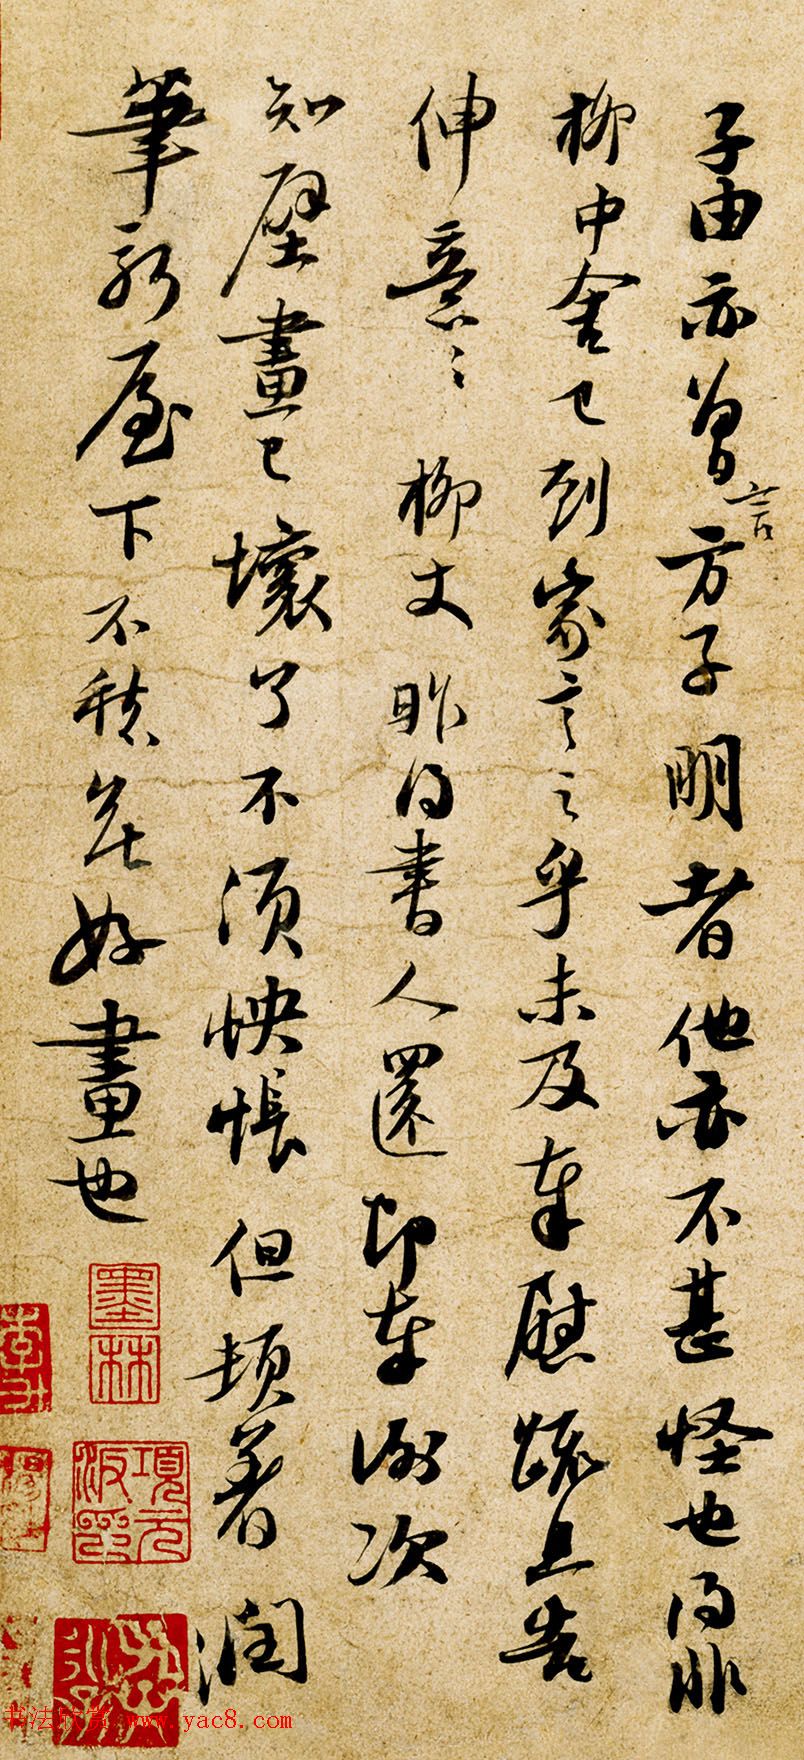 子由亦曾言方子明者他亦不甚怪也得非
柳中舍已到家言之乎未及奉慰疏且告
伸意〻柳丈昨得书人还即奉谢次
知壁畫已壞了不須怏悵但頓著潤
筆新屋下不積年好畫也
墨林
項元汴印
书法欣赏 www.yac8.com